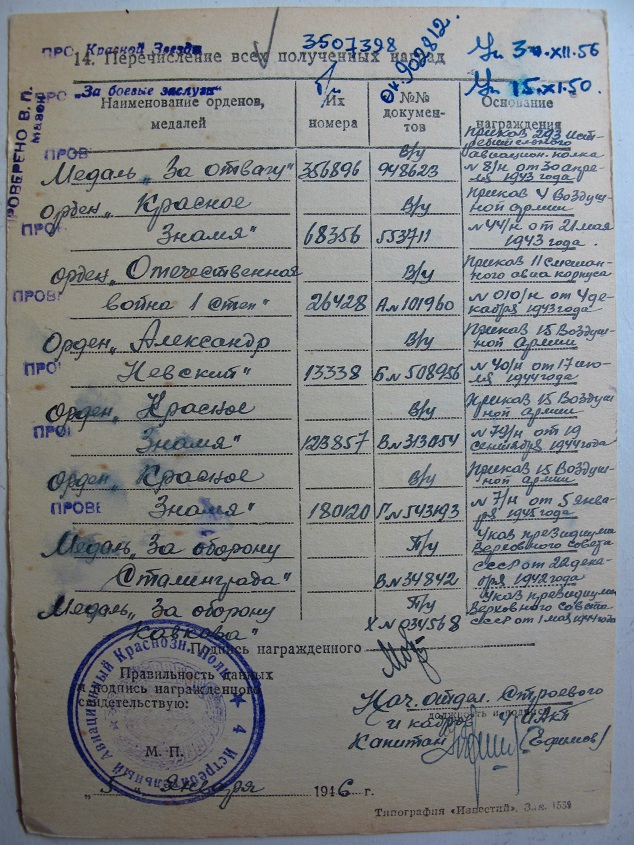 ПРО Красной Звезды 3507398 Ук 30.XII.56
14. Перечисление всех полученных наград
ОК №902812.
ПРО „За боевые заслуги" б/н Ук 15.XI.50.
ПРОВЕРЕНО В. П.
Наименование орденов, медалей
Их номера
№№ документов
Основание награждения
ПРОВ
Медаль „За отвагу" 356896 В/у 948623 приказ 293 истребительного авиацион. полка №8/н от 30 апреля 1943 года
Орден „Красное
ПРО
Знамя" 68356 В/у 553711 приказ 4 Воздушной армии №44/н от 21 мая 1943 года.
орден „Отечественная
ПРОВЕ
война 1 степ" 26428 В/у А№101960 приказ 11 смешанного авиа корпуса №010/н от 4 декабря 1943 года
Орден „Александр
ПРО
Невский" 13338 В/у Б№508956 Приказ 15 Воздушной армии №40/н от 17 июля 1944 года
Орден „Красное
ПРО
Знамя" 123857 В/у В№313054 Приказ 15 Воздушной армии №79/н от 19 сентября 1944 года
орден „Красное
ПРОВЕ
Знамя" 180120 В/у Г№543193 Приказ 15 Воздушной армии №7/н от 5 января 1945 года
Медаль „За оборону
Сталинграда" Т/у В№34842 Указ президиума Верховного Совета СССР от 22 декабря 1942 года
Медаль „За оборону
Кавказа" Т/у Х№034568 Указ президиума Верховного Совета СССР от 1 мая 1944 года
Подпись награжденного
Правильность данных
и подпись награжденного
свидетельствую:
Нач. отдел. Строевого
должность и подпись
и кадров 4 ИАКП
Капитан (Ефимов)
М. П.
4 Истребительный Авиационный Краснозн. Полк ★
„5" Января 1946 г.
Типография «Известий». Зак. 1539